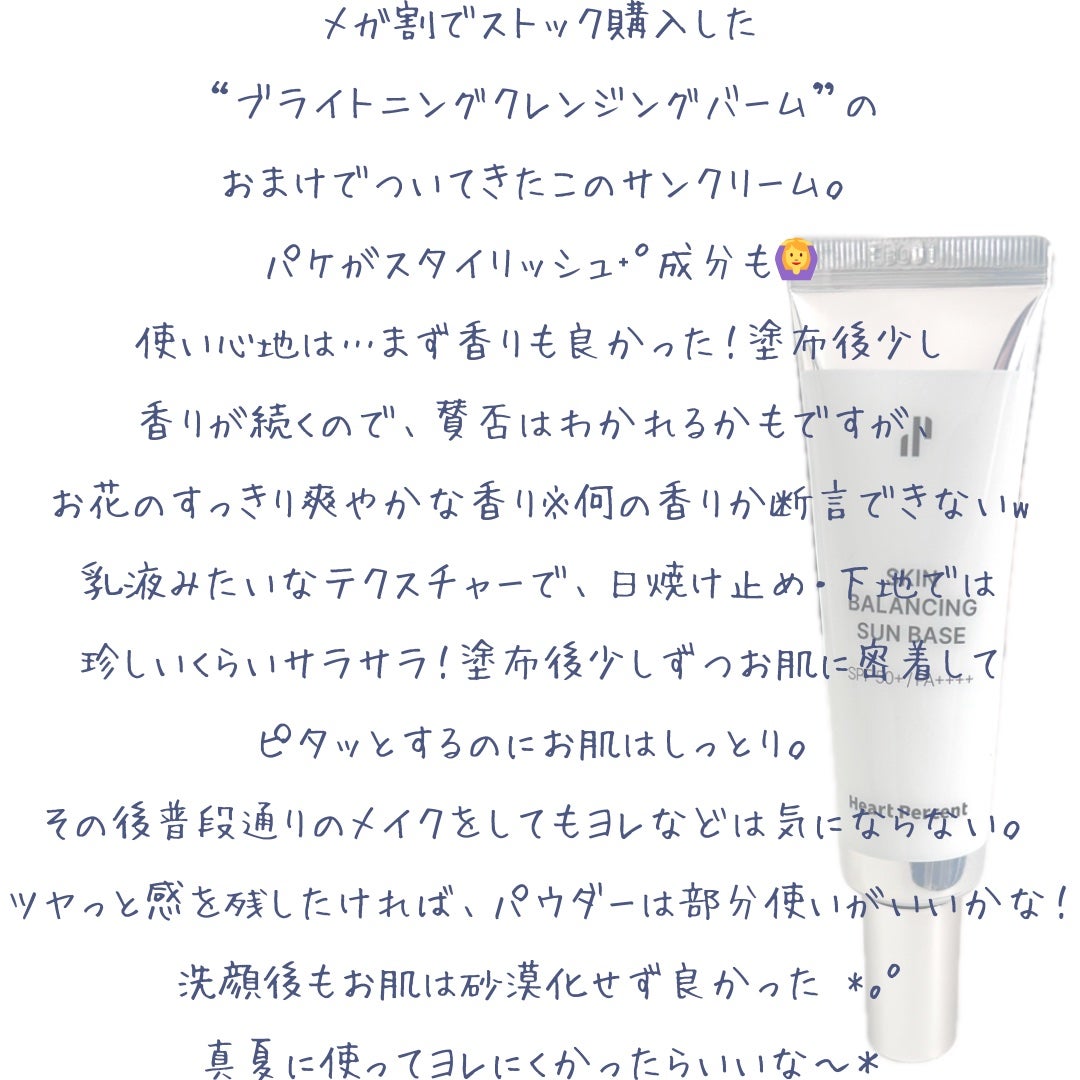 メガ割でストック購入した
“ブライトニングクレンジングバーム”の
おまけでついてきたこのサンクリーム。
パケがスタイリッシュ˖°成分も🙆
使い心地は…まず香りも良かった！塗布後少し
香りが続くので、賛否はわかれるかもですが、
お花のすっきり爽やかな香り※何の香りか断言できないw
乳液みたいなテクスチャーで、日焼け止め・下地では
珍しいくらいサラサラ！塗布後少しずつお肌に密着して
ピタッとするのにお肌はしっとり。
その後普段通りのメイクをしてもヨレなどは気にならない。
ツヤっと感を残したければ、パウダーは部分使いがいいかな！
洗顔後もお肌は砂漠化せず良かった *｡°
真夏に使ってヨレにくかったらいいな〜*
SKIN
BALANCING
SUN BASE
SPF50+/PA++++
Heart Percent